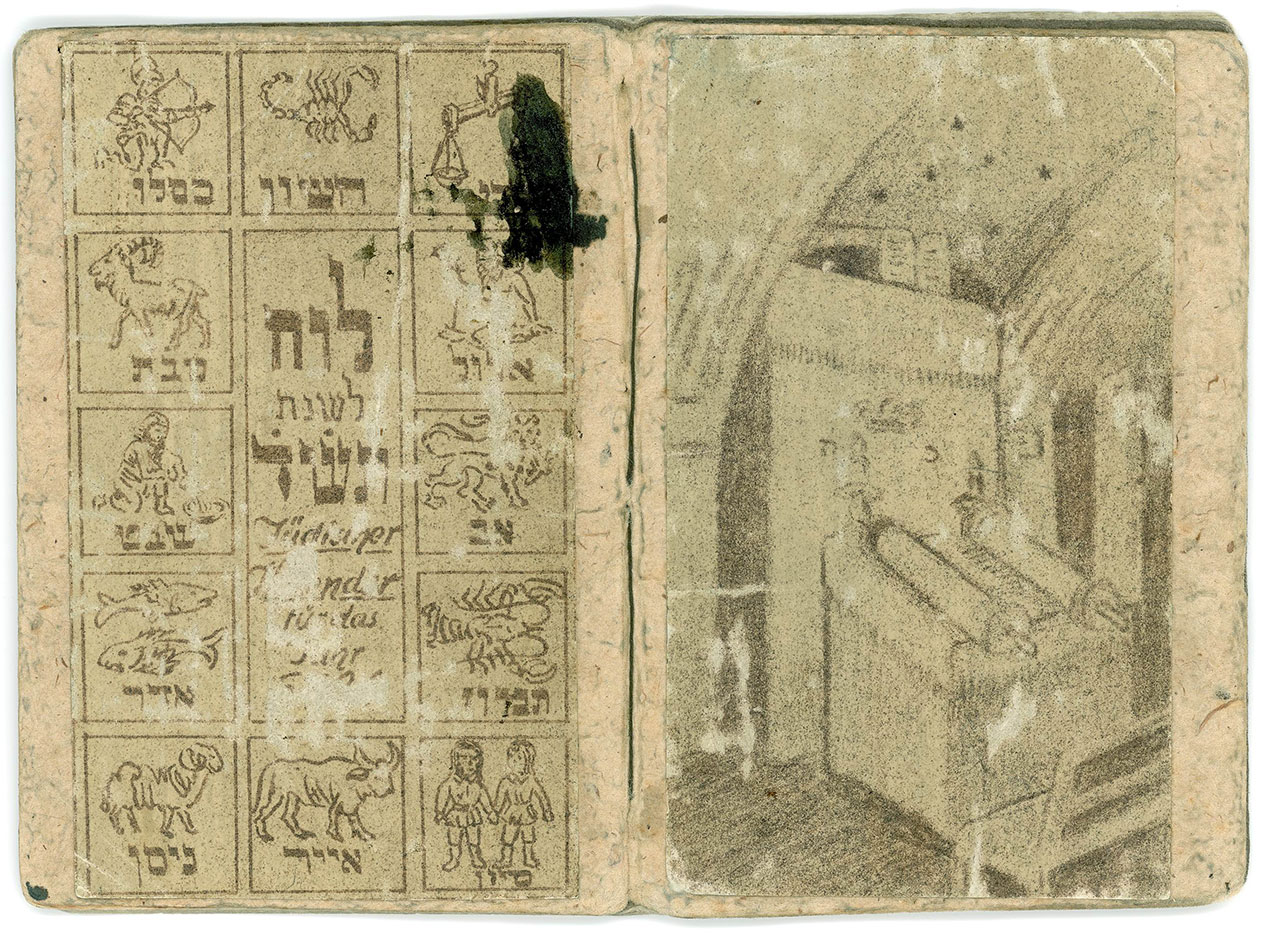 חשון
כסלו
אלול
לוח
לשנת
Jüdischer
Kalender
für das
Jahr
טבת
אב
שבט
תמוז
אדר
סיון
אייר
ניסן